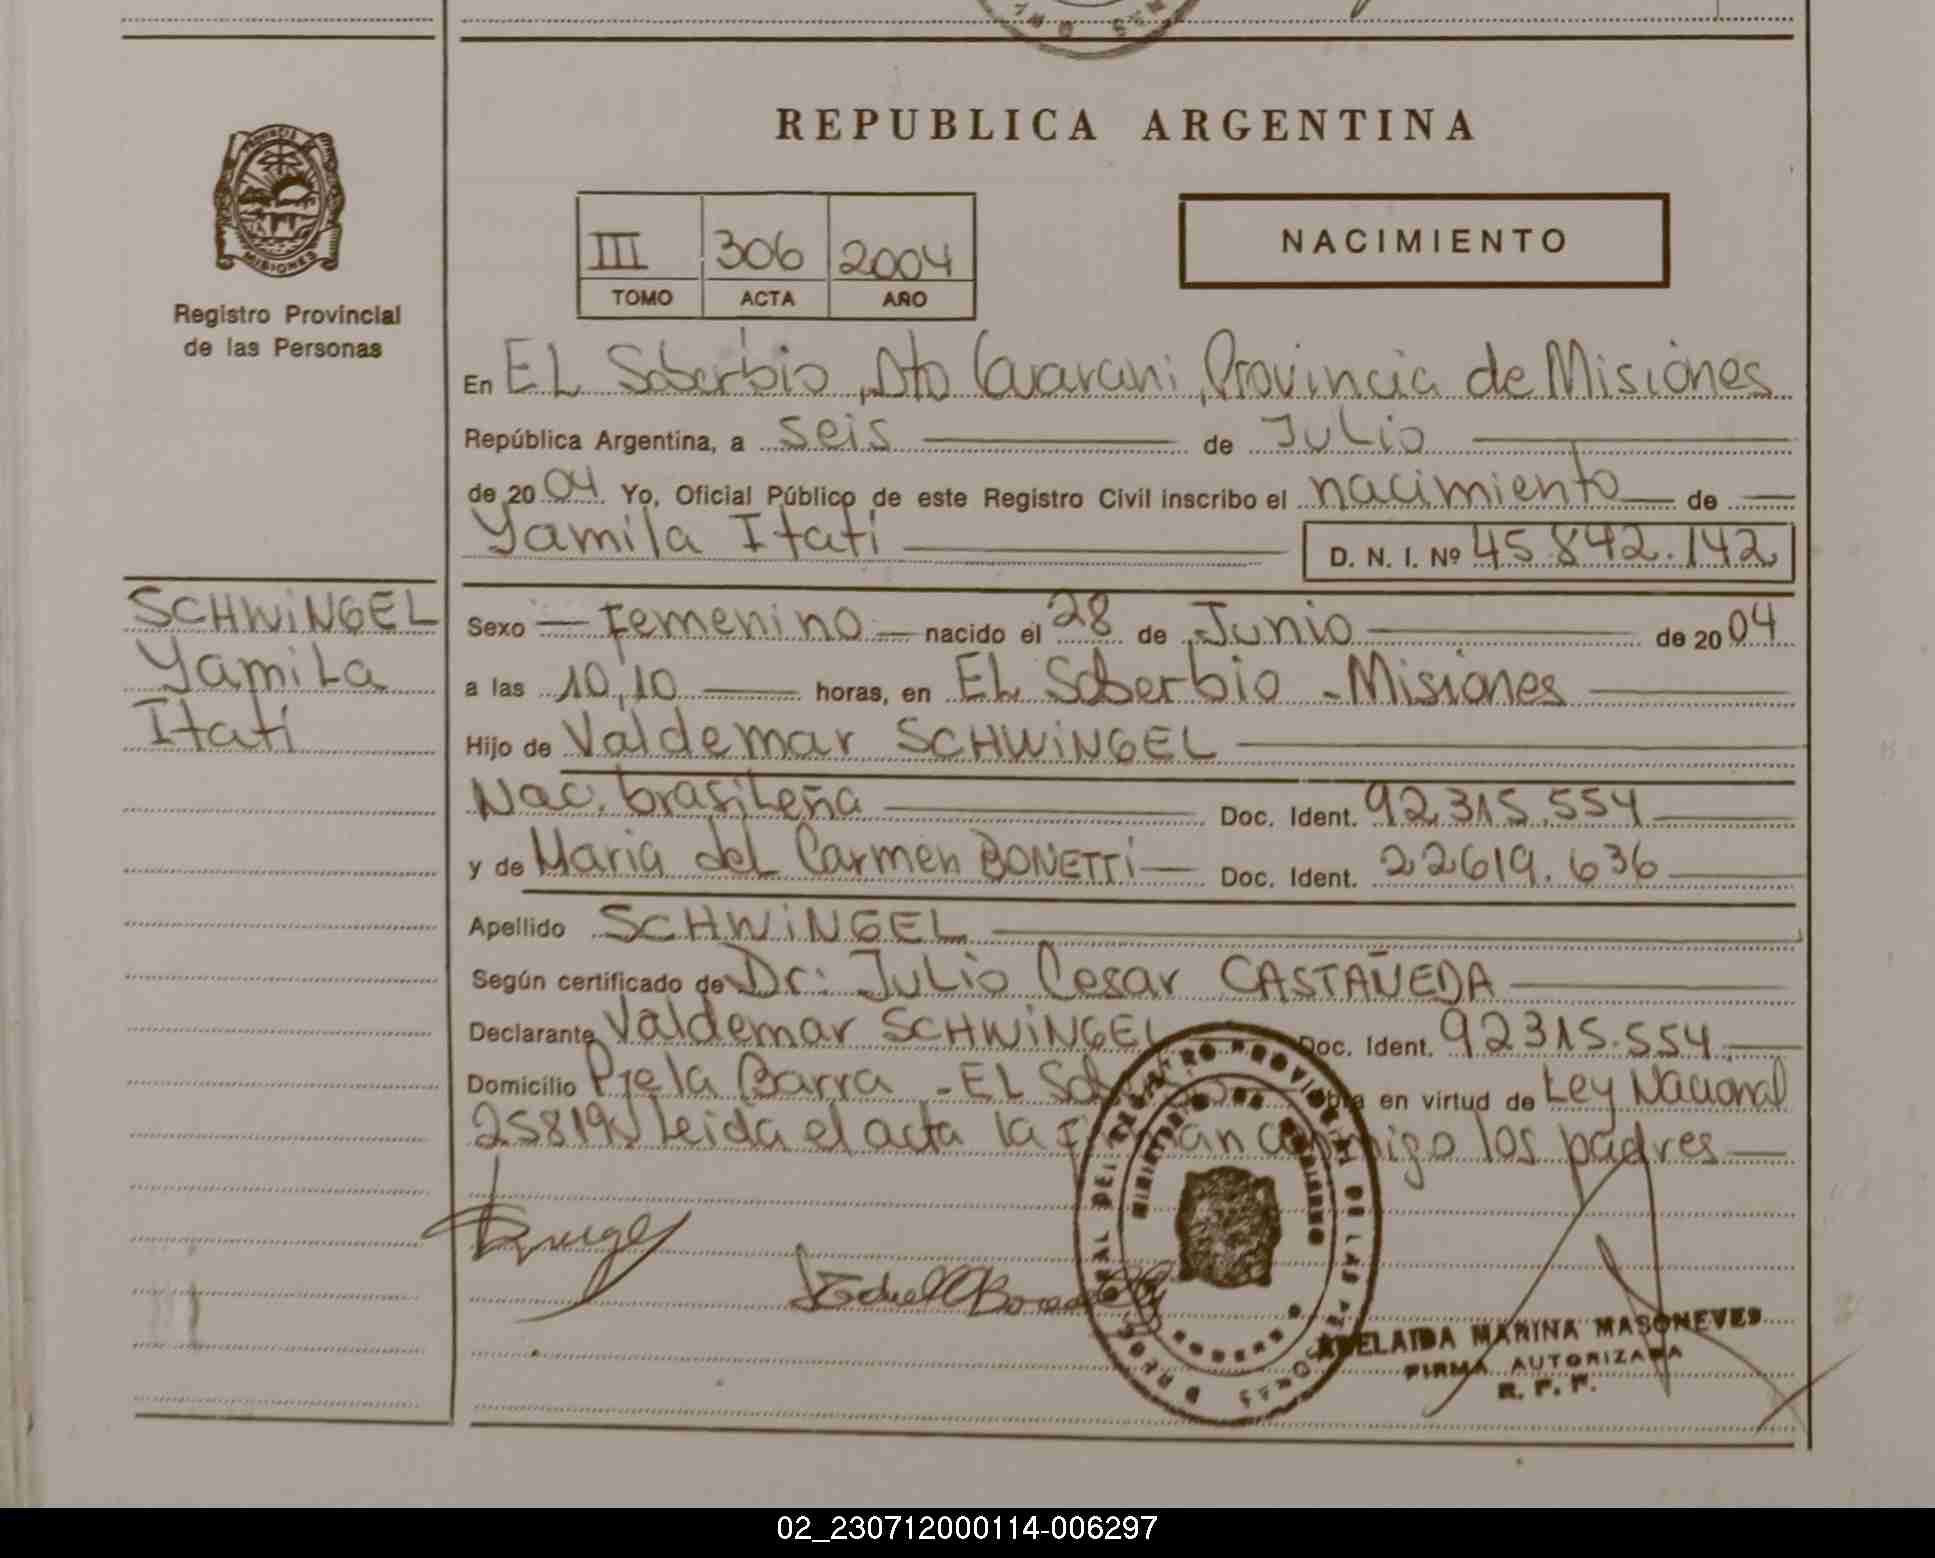 REPUBLICA ARGENTINA
PROVINCIA
MISIONES
Registro Provincial
de las Personas
III 306 2004
TOMO ACTA AÑO
NACIMIENTO
En EL Soberbio, Dto Guarani, Provincia de Misiones
República Argentina, a seis de Julio
de 2004 Yo, Oficial Público de este Registro Civil inscribo el nacimiento de
Yamila Itatí D. N. I. Nº 45.842.142
SCHWiNGEL
Yamila
Itatí
Sexo Femenino nacido el 28 de Junio de 2004
a las 10,10 horas, en EL Soberbio - Misiones
Hijo de Valdemar SCHWiNGEL
Nac. brasileña Doc. Ident. 92.315.554
y de Maria del Carmen BONETTi Doc. Ident. 22619.636
Apellido SCHWiNGEL
Según certificado de Dr: Julio Cesar CASTAÑEDA
Declarante Valdemar SCHWiNGEL Doc. Ident. 92315.554
Domicilio Pje la Barra - EL en virtud de Ley Nacional
25819 Leida el acta la los padres
ADELAIDA MARINA MASONEVES
FIRMA AUTORIZADA
R. P. P.
02_230712000114-006297